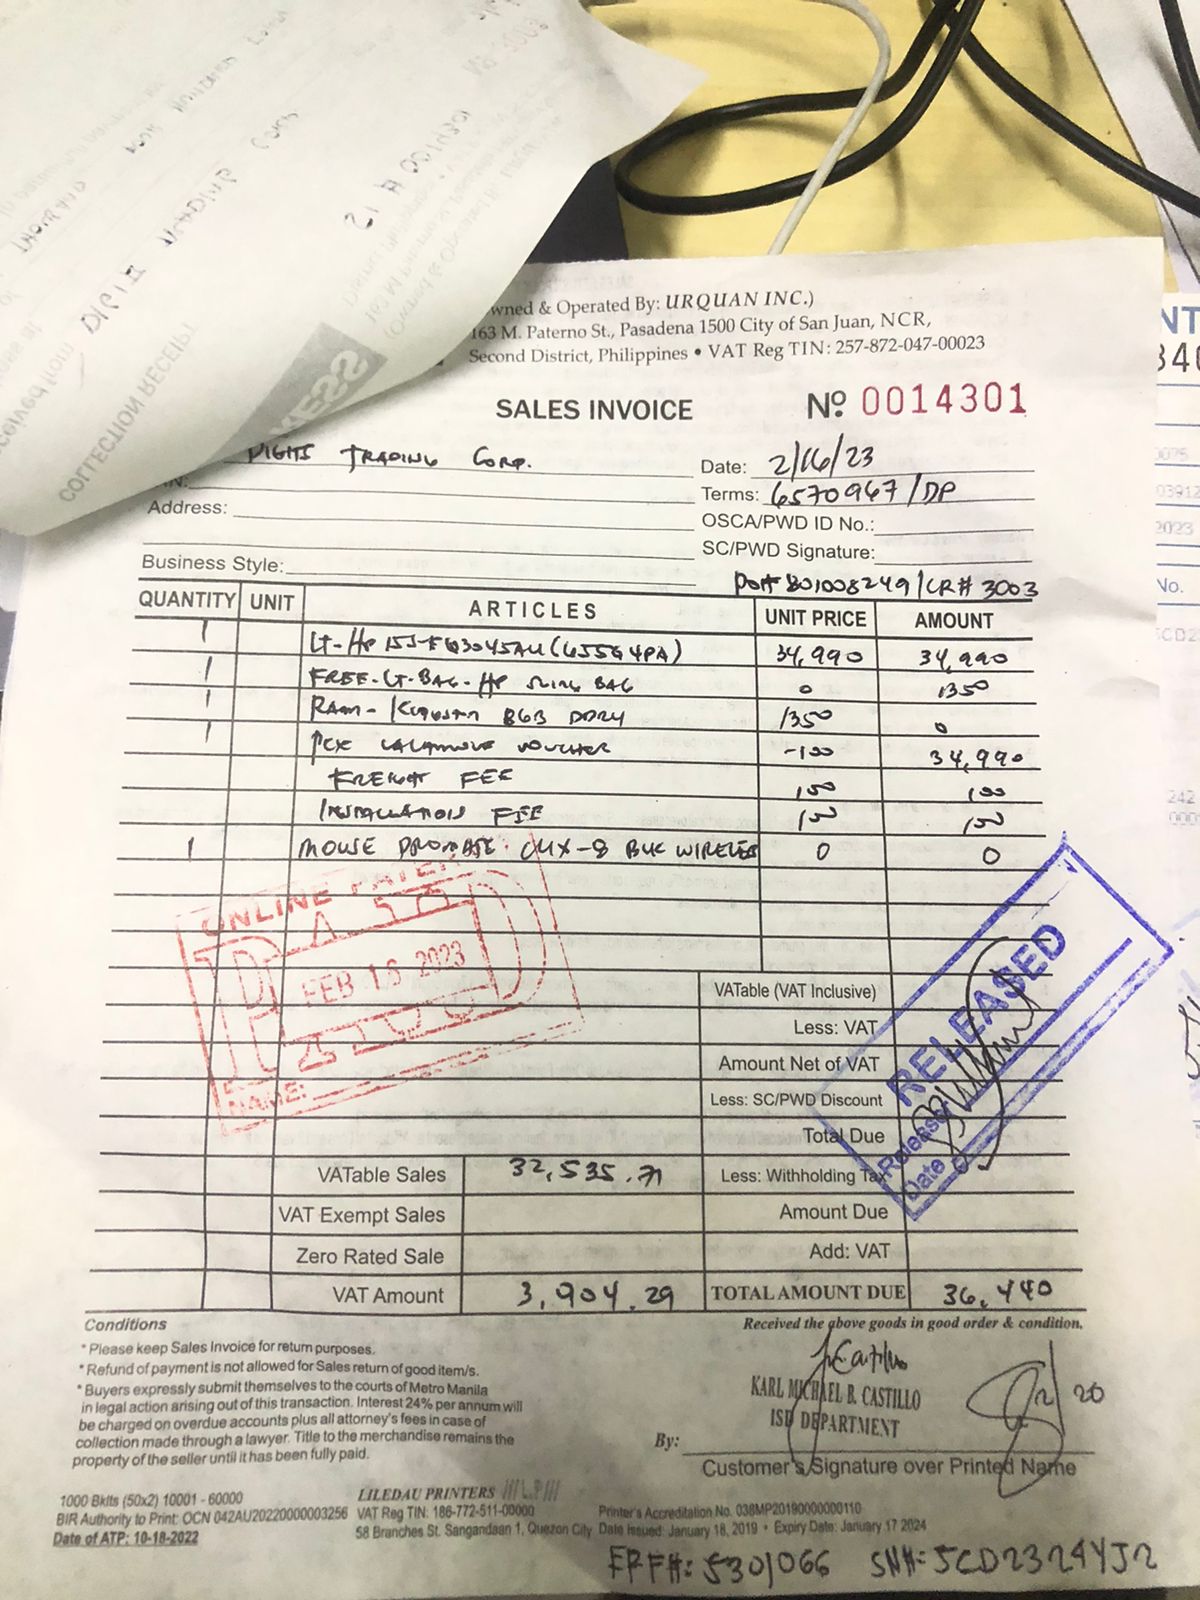 COLLECTION RECEIPT
DIGITS TRADING CORP
THOUSAND
(Owned & Operated
wned & Operated By: URQUAN INC.)
163 M. Paterno St., Pasadena 1500 City of San Juan, NCR,
Second District, Philippines • VAT Reg TIN: 257-872-047-00023
SALES INVOICE Nº 0014301
DIGITS TRADING CORP. Date: 2/16/23
Terms: 6570967/DP
Address: OSCA/PWD ID No.:
SC/PWD Signature:
Business Style:
PO# 801008249/CR# 3003
QUANTITY UNIT ARTICLES UNIT PRICE AMOUNT
1 LT-HP 15S-FQ3045AU(6S5G4PA) 34,990 34,990
1 FREE-LT-BAG-HP SLING BAG 0 1350
1 RAM-KINGSTON 8GB DDR4 1350 0
1 PCX LALAMOVE VOUCHER -100 34,990
FREIGHT FEE 100 100
INSTALLATION FEE
1 MOUSE PROMATE CLIX-8 BLK WIRELESS 0 0
ONLINE
PAID
FEB 16 2023
NAME:
RELEASED
Release
Date
VATable (VAT Inclusive)
Less: VAT
Amount Net of VAT
Less: SC/PWD Discount
Total Due
VATable Sales 32,535.71 Less: Withholding Tax
VAT Exempt Sales Amount Due
Zero Rated Sale Add: VAT
VAT Amount 3,904.29 TOTAL AMOUNT DUE 36,440
Conditions Received the above goods in good order & condition.
* Please keep Sales Invoice for return purposes.
* Refund of payment is not allowed for Sales return of good item/s.
* Buyers expressly submit themselves to the courts of Metro Manila
in legal action arising out of this transaction. Interest 24% per annum will
be charged on overdue accounts plus all attorney's fees in case of
collection made through a lawyer. Title to the merchandise remains the
property of the seller until it has been fully paid.
KARL MICHAEL B. CASTILLO
ISD DEPARTMENT
By:
Customer's Signature over Printed Name
1000 Bklts (50x2) 10001 - 60000
BIR Authority to Print: OCN 042AU20220000003256
Date of ATP: 10-18-2022
LILEDAU PRINTERS
VAT Reg TIN: 186-772-511-00000
58 Branches St. Sangandaan 1, Quezon City
Printer's Accreditation No. 038MP20190000000110
Date Issued: January 18, 2019 • Expiry Date: January 17 2024
FRF#: 5301066 SN#: 5CD2324YJ2